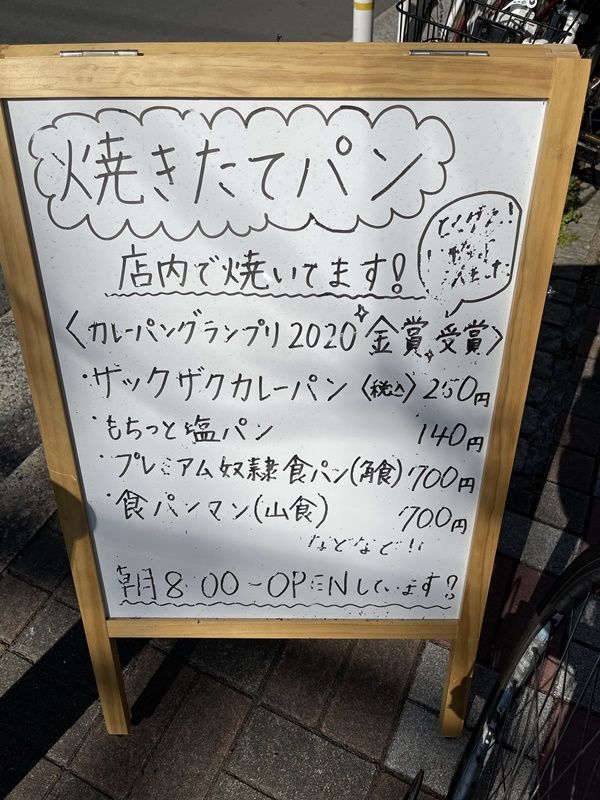 焼きたてパン
店内で焼いてます!
〈カレーパングランプリ2020 金賞受賞〉
・ザックザクカレーパン〈税込〉250円
・もちっと塩パン 140円
・プレミアム奴隷食パン(角食)700円
・食パンマン(山食) 700円
などなど!!
朝8:00~OPENしています?